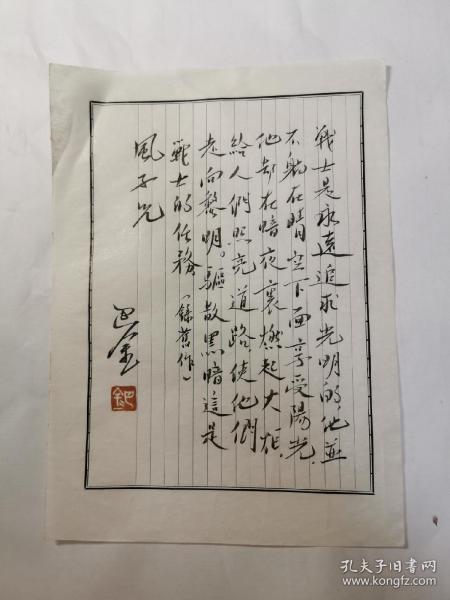 戰士是永遠追求光明的，他並
不躺在晴空下面享受陽光，
他却在暗夜裏燃起火炬，
給人們照亮道路，使他們
走向黎明。驅散黑暗，這是
戰士的任務。（錄舊作）
風子兄
巴金
孔夫子旧书网
www.kongfz.com